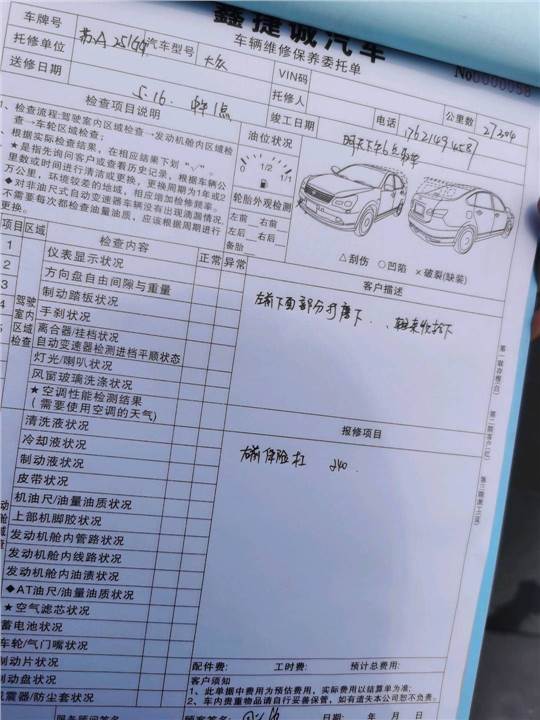 鑫捷诚汽车
车辆维修保养委托单
No0000058
车牌号 苏A 251GG 汽车型号 大众 VIN码
托修单位 托修人 电话 公里数 27204
送修日期 5.16. 竣工日期
检查项目说明
1、检查流程:驾驶室内区域检查→发动机舱内区域检
查→车轮区域检查;
根据实际检查结果,在相应结果下划
★是指先询问客户或查看历史记录,根据车辆公
里数或时间进行清洁或更换,更换周期为1年或2
万公里,环境较差的地域,相应增加检修频率。
◆对非油尺式自动变速器车辆没有出现滴漏情况,
不需要每次都检查油量油质,应该根据周期进行
更换。
油位状况
0 1/2 1/1
轮胎外观检测
左前 右前
左后 右后
备胎
△刮伤 ○凹陷 ×破裂(缺装)
项目 区域 检查内容 正常 异常
客户描述
1 仪表显示状况
2 方向盘自由间隙与重量
3 驾驶室内区域检查 制动踏板状况
4 手刹状况
5 离合器/挂档状况
自动变速器检测进档平顺状态
灯光/喇叭状况
风窗玻璃洗涤状况
★空调性能检测结果
(需要使用空调的天气)
清洗液状况
冷却液状况
制动液状况
皮带状况
机油尺/油量油质状况
上部机脚胶状况
发动机舱内管路状况
发动机舱内线路状况
发动机舱内油渍状况
◆AT油尺/油量油质状况
★空气滤芯状况
蓄电池状况
车轮/气门嘴状况
制动片状况
制动盘状况
减震器/防尘套状况
报修项目
右前保险杠 240.
配件费: 工时费: 预计总费用:
客户须知
1、此单据中费用为预估费用,实际费用以结算单为准;
2、车内贵重物品请自行妥善保管,如有遗失本公司恕不负责。
服务顾问签名 顾客签名 年 月 日
第一联存根(白)
第二联客户(红)